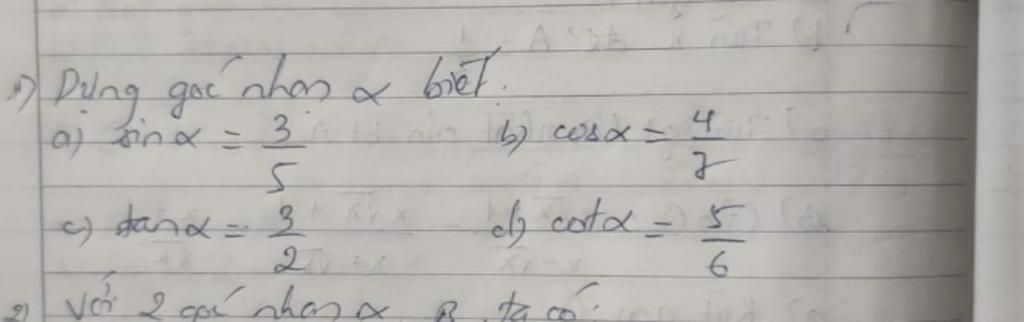 1) Dựng góc nhọn α biết.
a) sin α = 3/5 b) cos α = 4/7
c) tan α = 3/2 d) cot α = 5/6
2) Với 2 góc nhọn α, β, ta có: